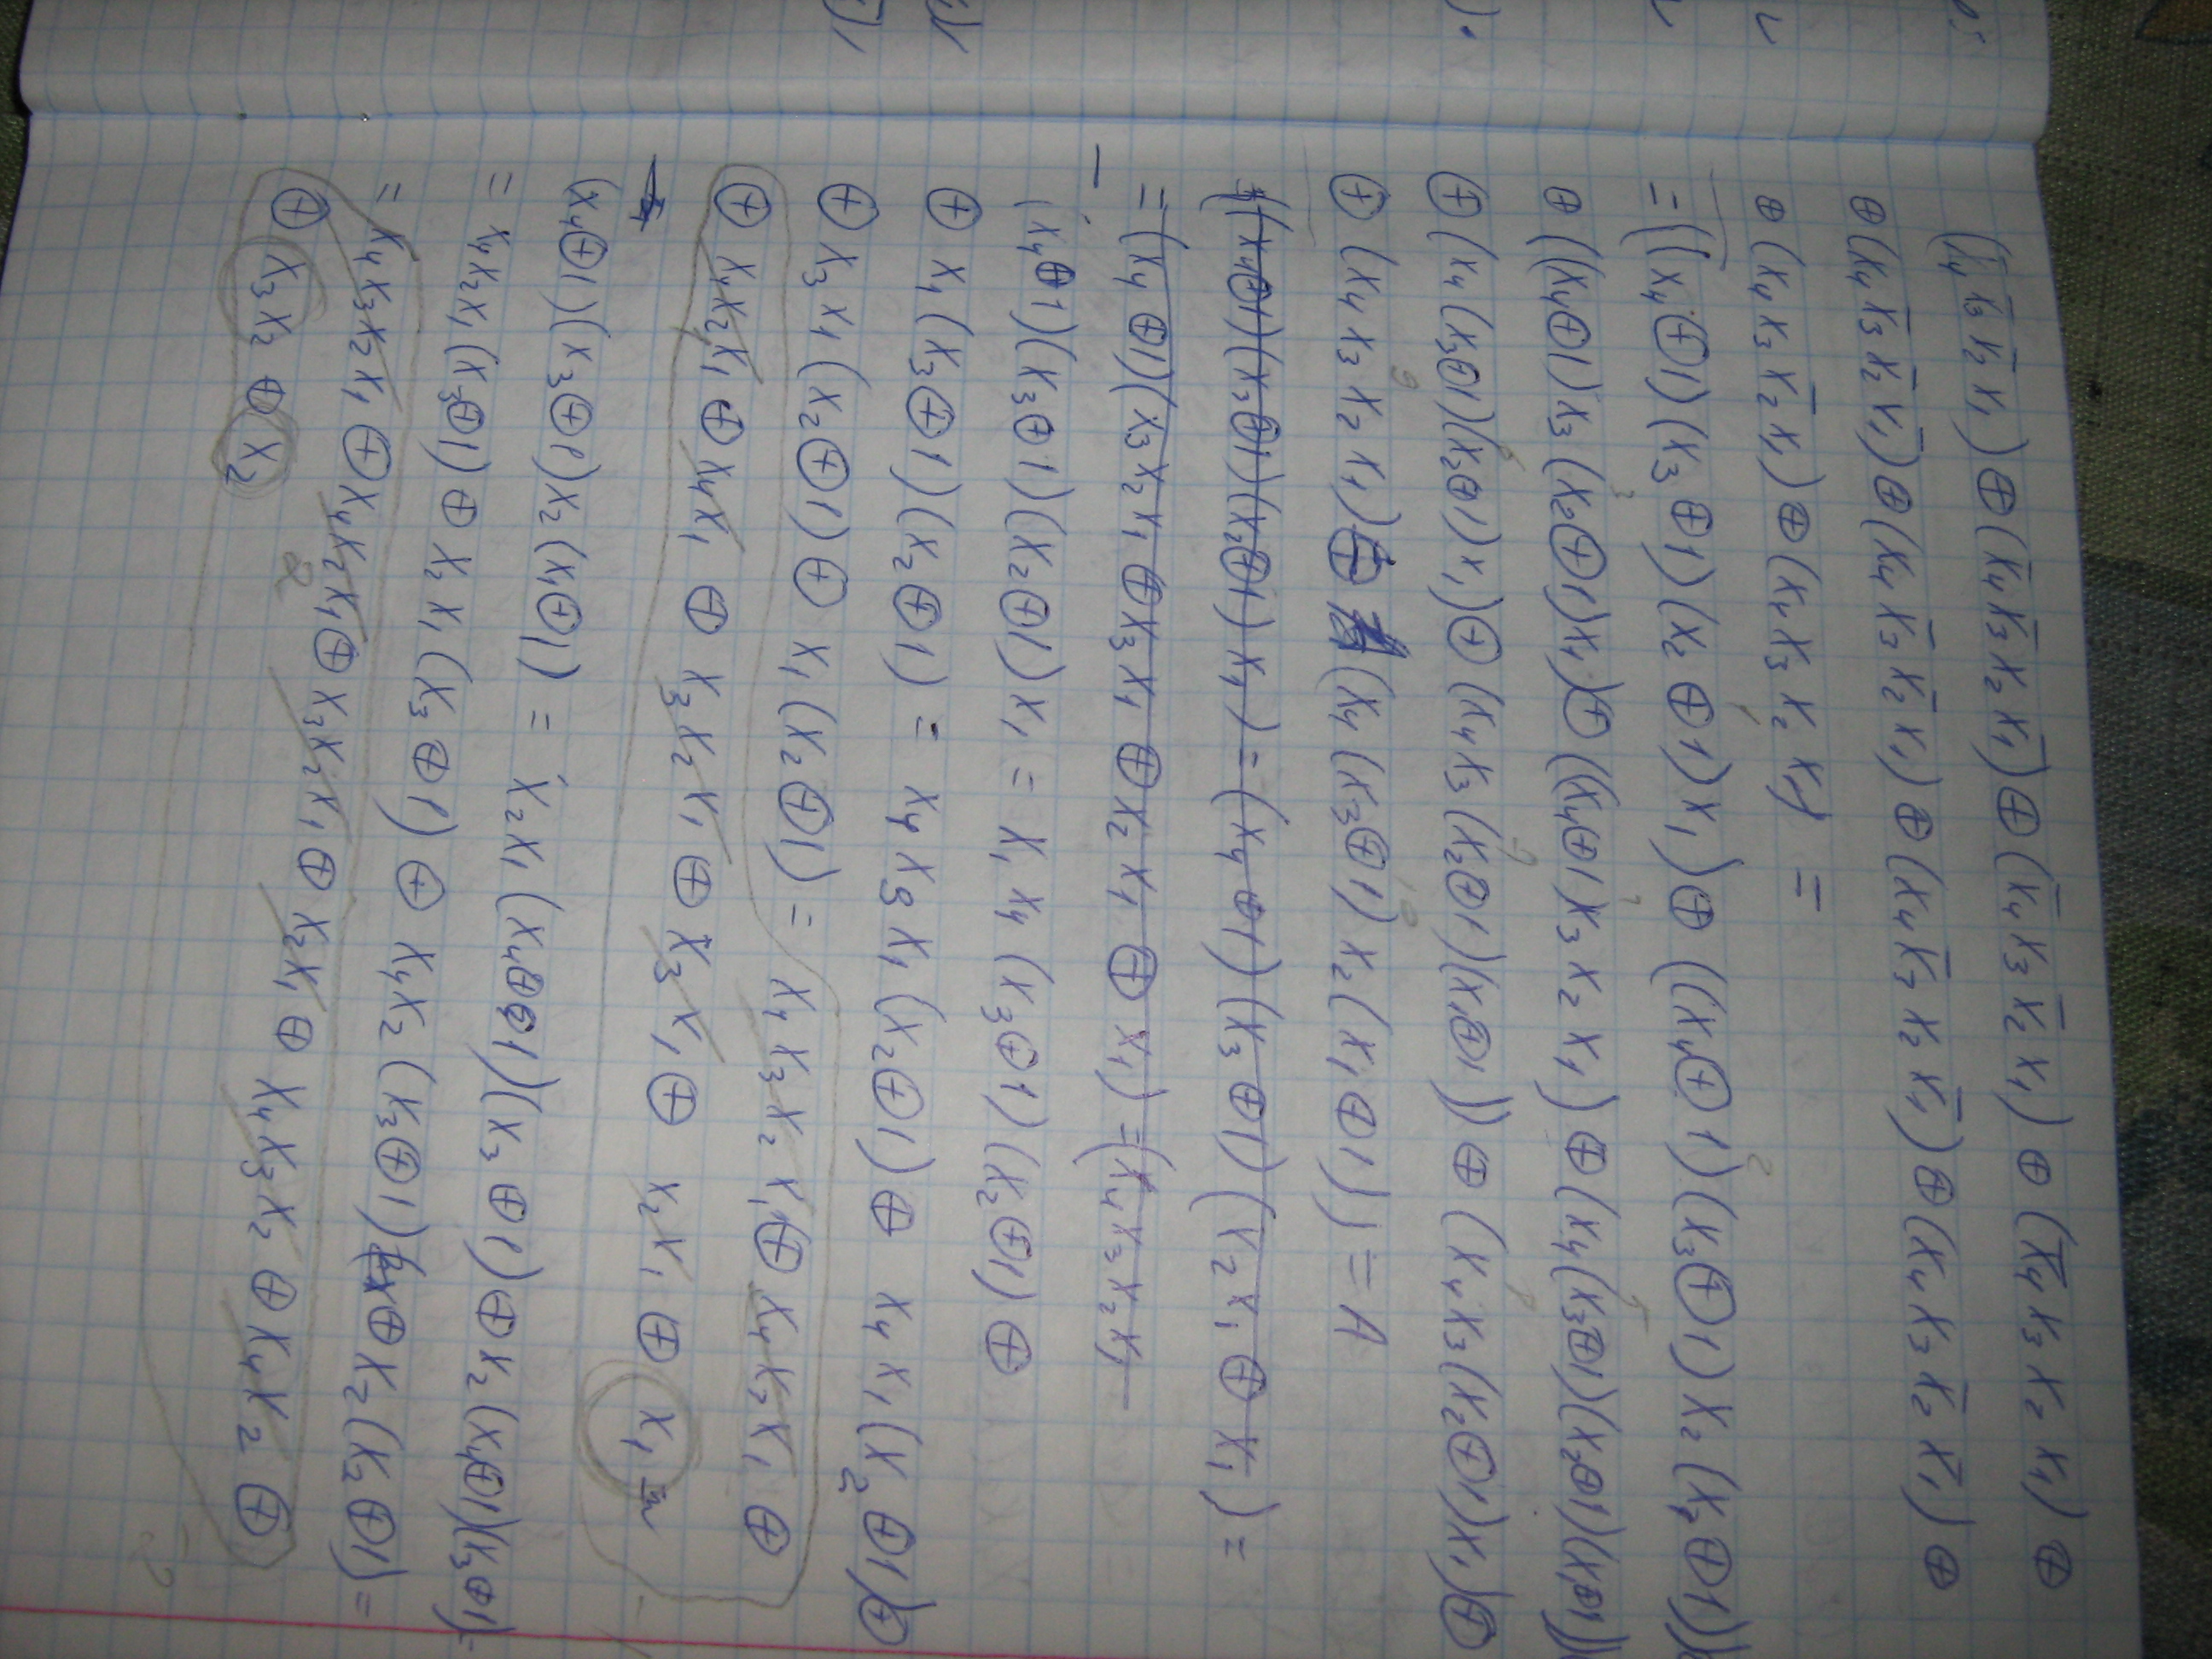 (x̄₄ x̄₃ x̄₂ x₁) ⊕ (x̄₄ x̄₃ x₂ x̄₁) ⊕ (x̄₄ x₃ x̄₂ x₁) ⊕ (x̄₄ x₃ x₂ x₁) ⊕
⊕ (x₄ x̄₃ x̄₂ x̄₁) ⊕ (x₄ x̄₃ x̄₂ x₁) ⊕ (x₄ x̄₃ x₂ x̄₁) ⊕ (x₄ x₃ x̄₂ x̄₁) ⊕
⊕ (x₄ x₃ x̄₂ x₁) ⊕ (x₄ x₃ x₂ x₁) =
= ((x₄ ⊕ 1) (x₃ ⊕ 1) (x₂ ⊕ 1) x₁) ⊕ ((x₄ ⊕ 1) (x₃ ⊕ 1) x₂ (x₁ ⊕ 1)) 
⊕ ((x₄ ⊕ 1) x₃ (x₂ ⊕ 1) x₁) ⊕ ((x₄ ⊕ 1) x₃ x₂ x₁) ⊕ (x₄ (x₃ ⊕ 1) (x₂ ⊕ 1) (x₁ ⊕ 1))
⊕ (x₄ (x₃ ⊕ 1) (x₂ ⊕ 1) x₁) ⊕ (x₄ x₃ (x₂ ⊕ 1) (x₁ ⊕ 1)) ⊕ (x₄ x₃ (x₂ ⊕ 1) x₁) ⊕
⊕ (x₄ x₃ x₂ x₁) ⊕ (x₄ (x₃ ⊕ 1) x₂ (x₁ ⊕ 1)) = A
((x₄ ⊕ 1) (x₃ ⊕ 1) (x₂ ⊕ 1) x₁) = (x₄ ⊕ 1) (x₃ ⊕ 1) (x₂ x₁ ⊕ x₁) =
= (x₄ ⊕ 1) (x₃ x₂ x₁ ⊕ x₃ x₁ ⊕ x₂ x₁ ⊕ x₁) = (x₄ x₃ x₂ x₁
(x₄ ⊕ 1) (x₃ ⊕ 1) (x₂ ⊕ 1) x₁ = x₁ x₄ (x₃ ⊕ 1) (x₂ ⊕ 1) ⊕
⊕ x₁ (x₃ ⊕ 1) (x₂ ⊕ 1) = x₄ x₃ x₁ (x₂ ⊕ 1) ⊕ x₄ x₁ (x₂ ⊕ 1) ⊕
⊕ x₃ x₁ (x₂ ⊕ 1) ⊕ x₁ (x₂ ⊕ 1) = x₄ x₃ x₂ x₁ ⊕ x₄ x₃ x₁ ⊕
⊕ x₄ x₂ x₁ ⊕ x₄ x₁ ⊕ x₃ x₂ x₁ ⊕ x₃ x₁ ⊕ x₂ x₁ ⊕ x₁ =
(x₄ ⊕ 1) (x₃ ⊕ 1) x₂ (x₁ ⊕ 1) = x₂ x₁ (x₄ ⊕ 1) (x₃ ⊕ 1) ⊕ x₂ (x₄ ⊕ 1) (x₃ ⊕ 1) =
= x₄ x₂ x₁ (x₃ ⊕ 1) ⊕ x₂ x₁ (x₃ ⊕ 1) ⊕ x₄ x₂ (x₃ ⊕ 1) ⊕ x₂ (x₃ ⊕ 1) =
= x₄ x₃ x₂ x₁ ⊕ x₄ x₂ x₁ ⊕ x₃ x₂ x₁ ⊕ x₂ x₁ ⊕ x₄ x₃ x₂ ⊕ x₄ x₂ ⊕
⊕ x₃ x₂ ⊕ x₂